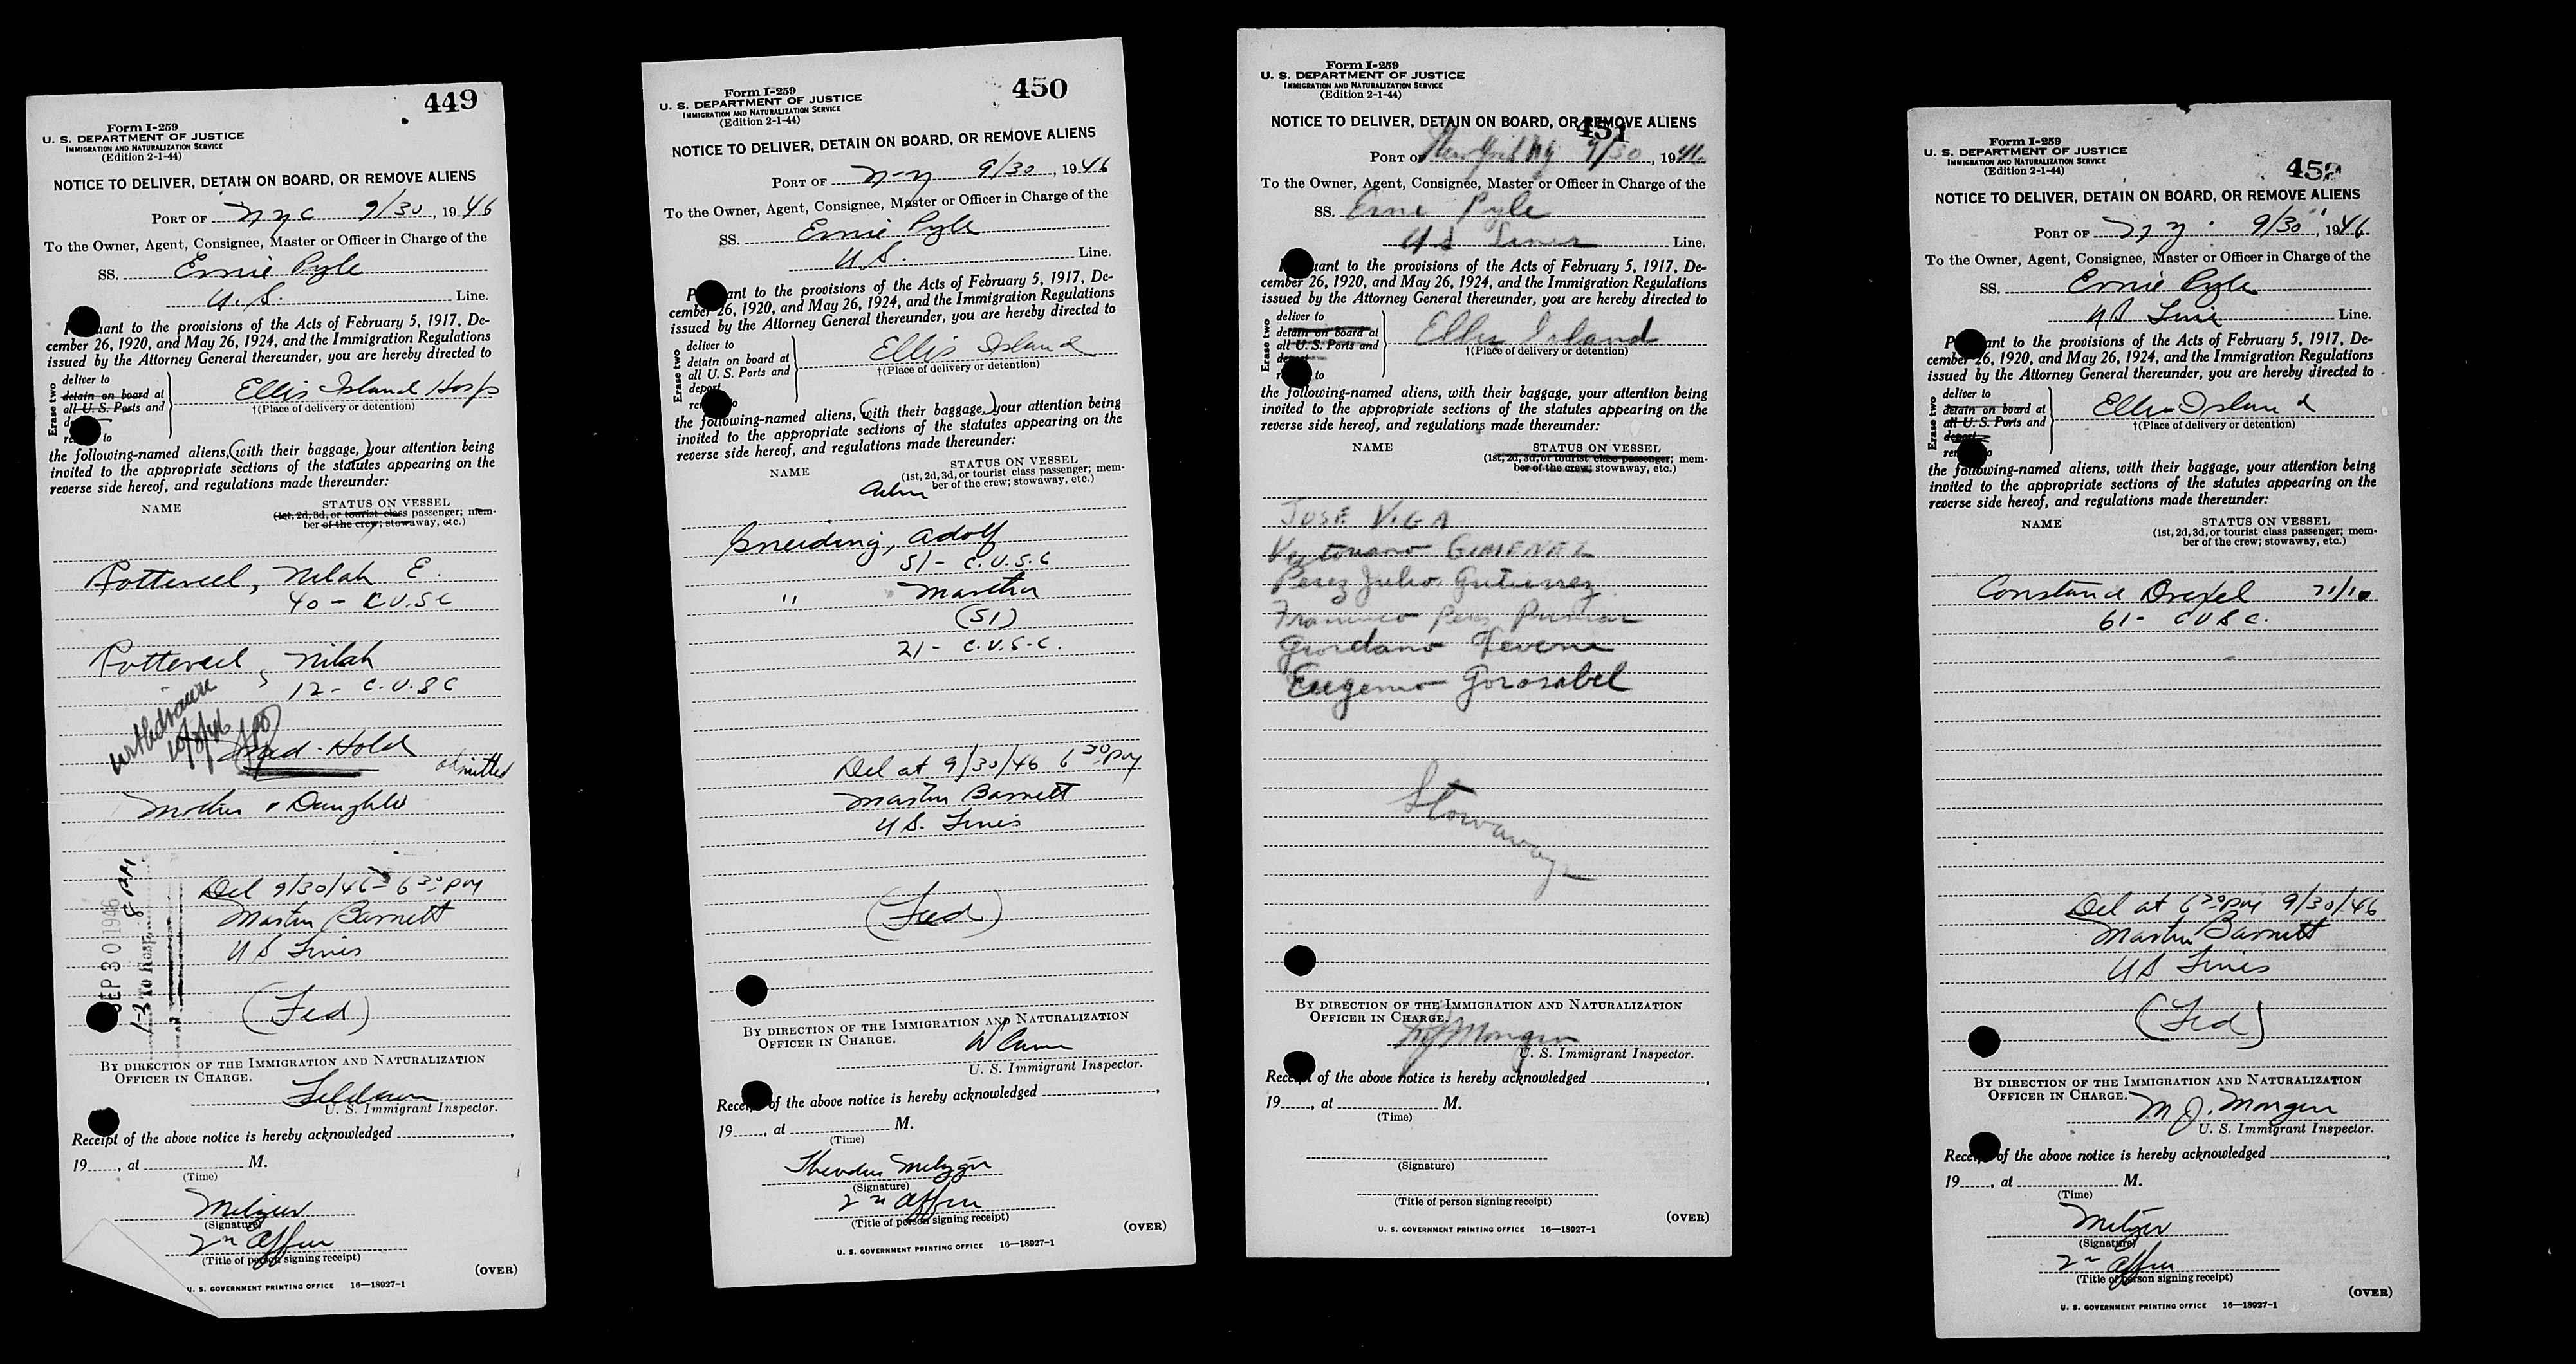 449
Form I-259
U. S. DEPARTMENT OF JUSTICE
IMMIGRATION AND NATURALIZATION SERVICE
(Edition 2-1-44)
NOTICE TO DELIVER, DETAIN ON BOARD, OR REMOVE ALIENS
PORT OF NYC 9/30, 1946
To the Owner, Agent, Consignee, Master or Officer in Charge of the
SS. Ernie Pyle
U.S. Line.
uant to the provisions of the Acts of February 5, 1917, De-
cember 26, 1920, and May 26, 1924, and the Immigration Regulations
issued by the Attorney General thereunder, you are hereby directed to
Erase two
deliver to
detain on board at
all U. S. Ports and
to
Ellis Island Hosp
†(Place of delivery or detention)
the following-named aliens, (with their baggage,) your attention being
invited to the appropriate sections of the statutes appearing on the
reverse side hereof, and regulations made thereunder:
NAME
STATUS ON VESSEL
(1st, 2d, 3d, or tourist class passenger; mem-
ber of the crew; stowaway, etc.)
Nilah E.
40 - C.V.S.C
Nilah
12 - C.V.S.C
withdrawn
Med-Hold
admitted
Mother & Daughter
Del 9/30/46 - 6 30 PM
Martin Barnett
U S Lines
(Fed)
SEP 30 1946
8 PM
BY DIRECTION OF THE IMMIGRATION AND NATURALIZATION
OFFICER IN CHARGE.
U. S. Immigrant Inspector.
Receipt of the above notice is hereby acknowledged
19, at M.
(Time)
(Signature)
(Title of person signing receipt)
(OVER)
U. S. GOVERNMENT PRINTING OFFICE 16—18927-1
450
Form I-259
U. S. DEPARTMENT OF JUSTICE
IMMIGRATION AND NATURALIZATION SERVICE
(Edition 2-1-44)
NOTICE TO DELIVER, DETAIN ON BOARD, OR REMOVE ALIENS
PORT OF N-Y 9/30, 1946
To the Owner, Agent, Consignee, Master or Officer in Charge of the
SS. Ernie Pyle
U.S. Line.
ant to the provisions of the Acts of February 5, 1917, De-
cember 26, 1920, and May 26, 1924, and the Immigration Regulations
issued by the Attorney General thereunder, you are hereby directed to
Erase two
deliver to
detain on board at
all U. S. Ports and
deport
Ellis Island
†(Place of delivery or detention)
the following-named aliens, (with their baggage,) your attention being
invited to the appropriate sections of the statutes appearing on the
reverse side hereof, and regulations made thereunder:
NAME
STATUS ON VESSEL
(1st, 2d, 3d, or tourist class passenger; mem-
ber of the crew; stowaway, etc.)
Adolf
51 - C.V.S.C
" Martha
(51)
21 - C.V.S.C.
Del at 9/30/46 6 30 PM
Martin Barnett
U S. Lines
(Fed)
BY DIRECTION OF THE IMMIGRATION AND NATURALIZATION
OFFICER IN CHARGE.
U. S. Immigrant Inspector.
Receipt of the above notice is hereby acknowledged
19, at M.
(Time)
(Signature)
(Title of person signing receipt)
(OVER)
U. S. GOVERNMENT PRINTING OFFICE 16—18927-1
Form I-259
U. S. DEPARTMENT OF JUSTICE
IMMIGRATION AND NATURALIZATION SERVICE
(Edition 2-1-44)
NOTICE TO DELIVER, DETAIN ON BOARD, OR REMOVE ALIENS
451
PORT OF New York NY 9/30, 1946
To the Owner, Agent, Consignee, Master or Officer in Charge of the
SS. Ernie Pyle
US Lines Line.
uant to the provisions of the Acts of February 5, 1917, De-
cember 26, 1920, and May 26, 1924, and the Immigration Regulations
issued by the Attorney General thereunder, you are hereby directed to
Erase two
deliver to
detain on board at
all U. S. Ports and
to
Ellis Island
†(Place of delivery or detention)
the following-named aliens, with their baggage, your attention being
invited to the appropriate sections of the statutes appearing on the
reverse side hereof, and regulations made thereunder:
NAME
STATUS ON VESSEL
(1st, 2d, 3d, or tourist class passenger; mem-
ber of the crew; stowaway, etc.)
JOSE VIGA
GIMENEZ
Perez Julio Gutierrez
Francisco Perez
Giordano
Eugenio Gorosabel
Stowaways
BY DIRECTION OF THE IMMIGRATION AND NATURALIZATION
OFFICER IN CHARGE.
MJ Morgen
U. S. Immigrant Inspector.
Receipt of the above notice is hereby acknowledged
19, at M.
(Time)
(Signature)
(Title of person signing receipt)
(OVER)
U. S. GOVERNMENT PRINTING OFFICE 16—18927-1
Form I-259
U. S. DEPARTMENT OF JUSTICE
IMMIGRATION AND NATURALIZATION SERVICE
(Edition 2-1-44)
452
NOTICE TO DELIVER, DETAIN ON BOARD, OR REMOVE ALIENS
PORT OF N Y 9/30, 1946
To the Owner, Agent, Consignee, Master or Officer in Charge of the
SS. Ernie Pyle
US Line Line.
ant to the provisions of the Acts of February 5, 1917, De-
cember 26, 1920, and May 26, 1924, and the Immigration Regulations
issued by the Attorney General thereunder, you are hereby directed to
Erase two
deliver to
detain on board at
all U. S. Ports and
deport
Ellis Island
†(Place of delivery or detention)
the following-named aliens, with their baggage, your attention being
invited to the appropriate sections of the statutes appearing on the
reverse side hereof, and regulations made thereunder:
NAME
STATUS ON VESSEL
(1st, 2d, 3d, or tourist class passenger; mem-
ber of the crew; stowaway, etc.)
Constance Drexel
61 - C V S C.
Del at 6 30 PM 9/30/46
Martin Barnett
U S Lines
(Fed)
BY DIRECTION OF THE IMMIGRATION AND NATURALIZATION
OFFICER IN CHARGE.
M. J. Morgen
U. S. Immigrant Inspector.
Receipt of the above notice is hereby acknowledged
19, at M.
(Time)
(Signature)
(Title of person signing receipt)
(OVER)
U. S. GOVERNMENT PRINTING OFFICE 16—18927-1